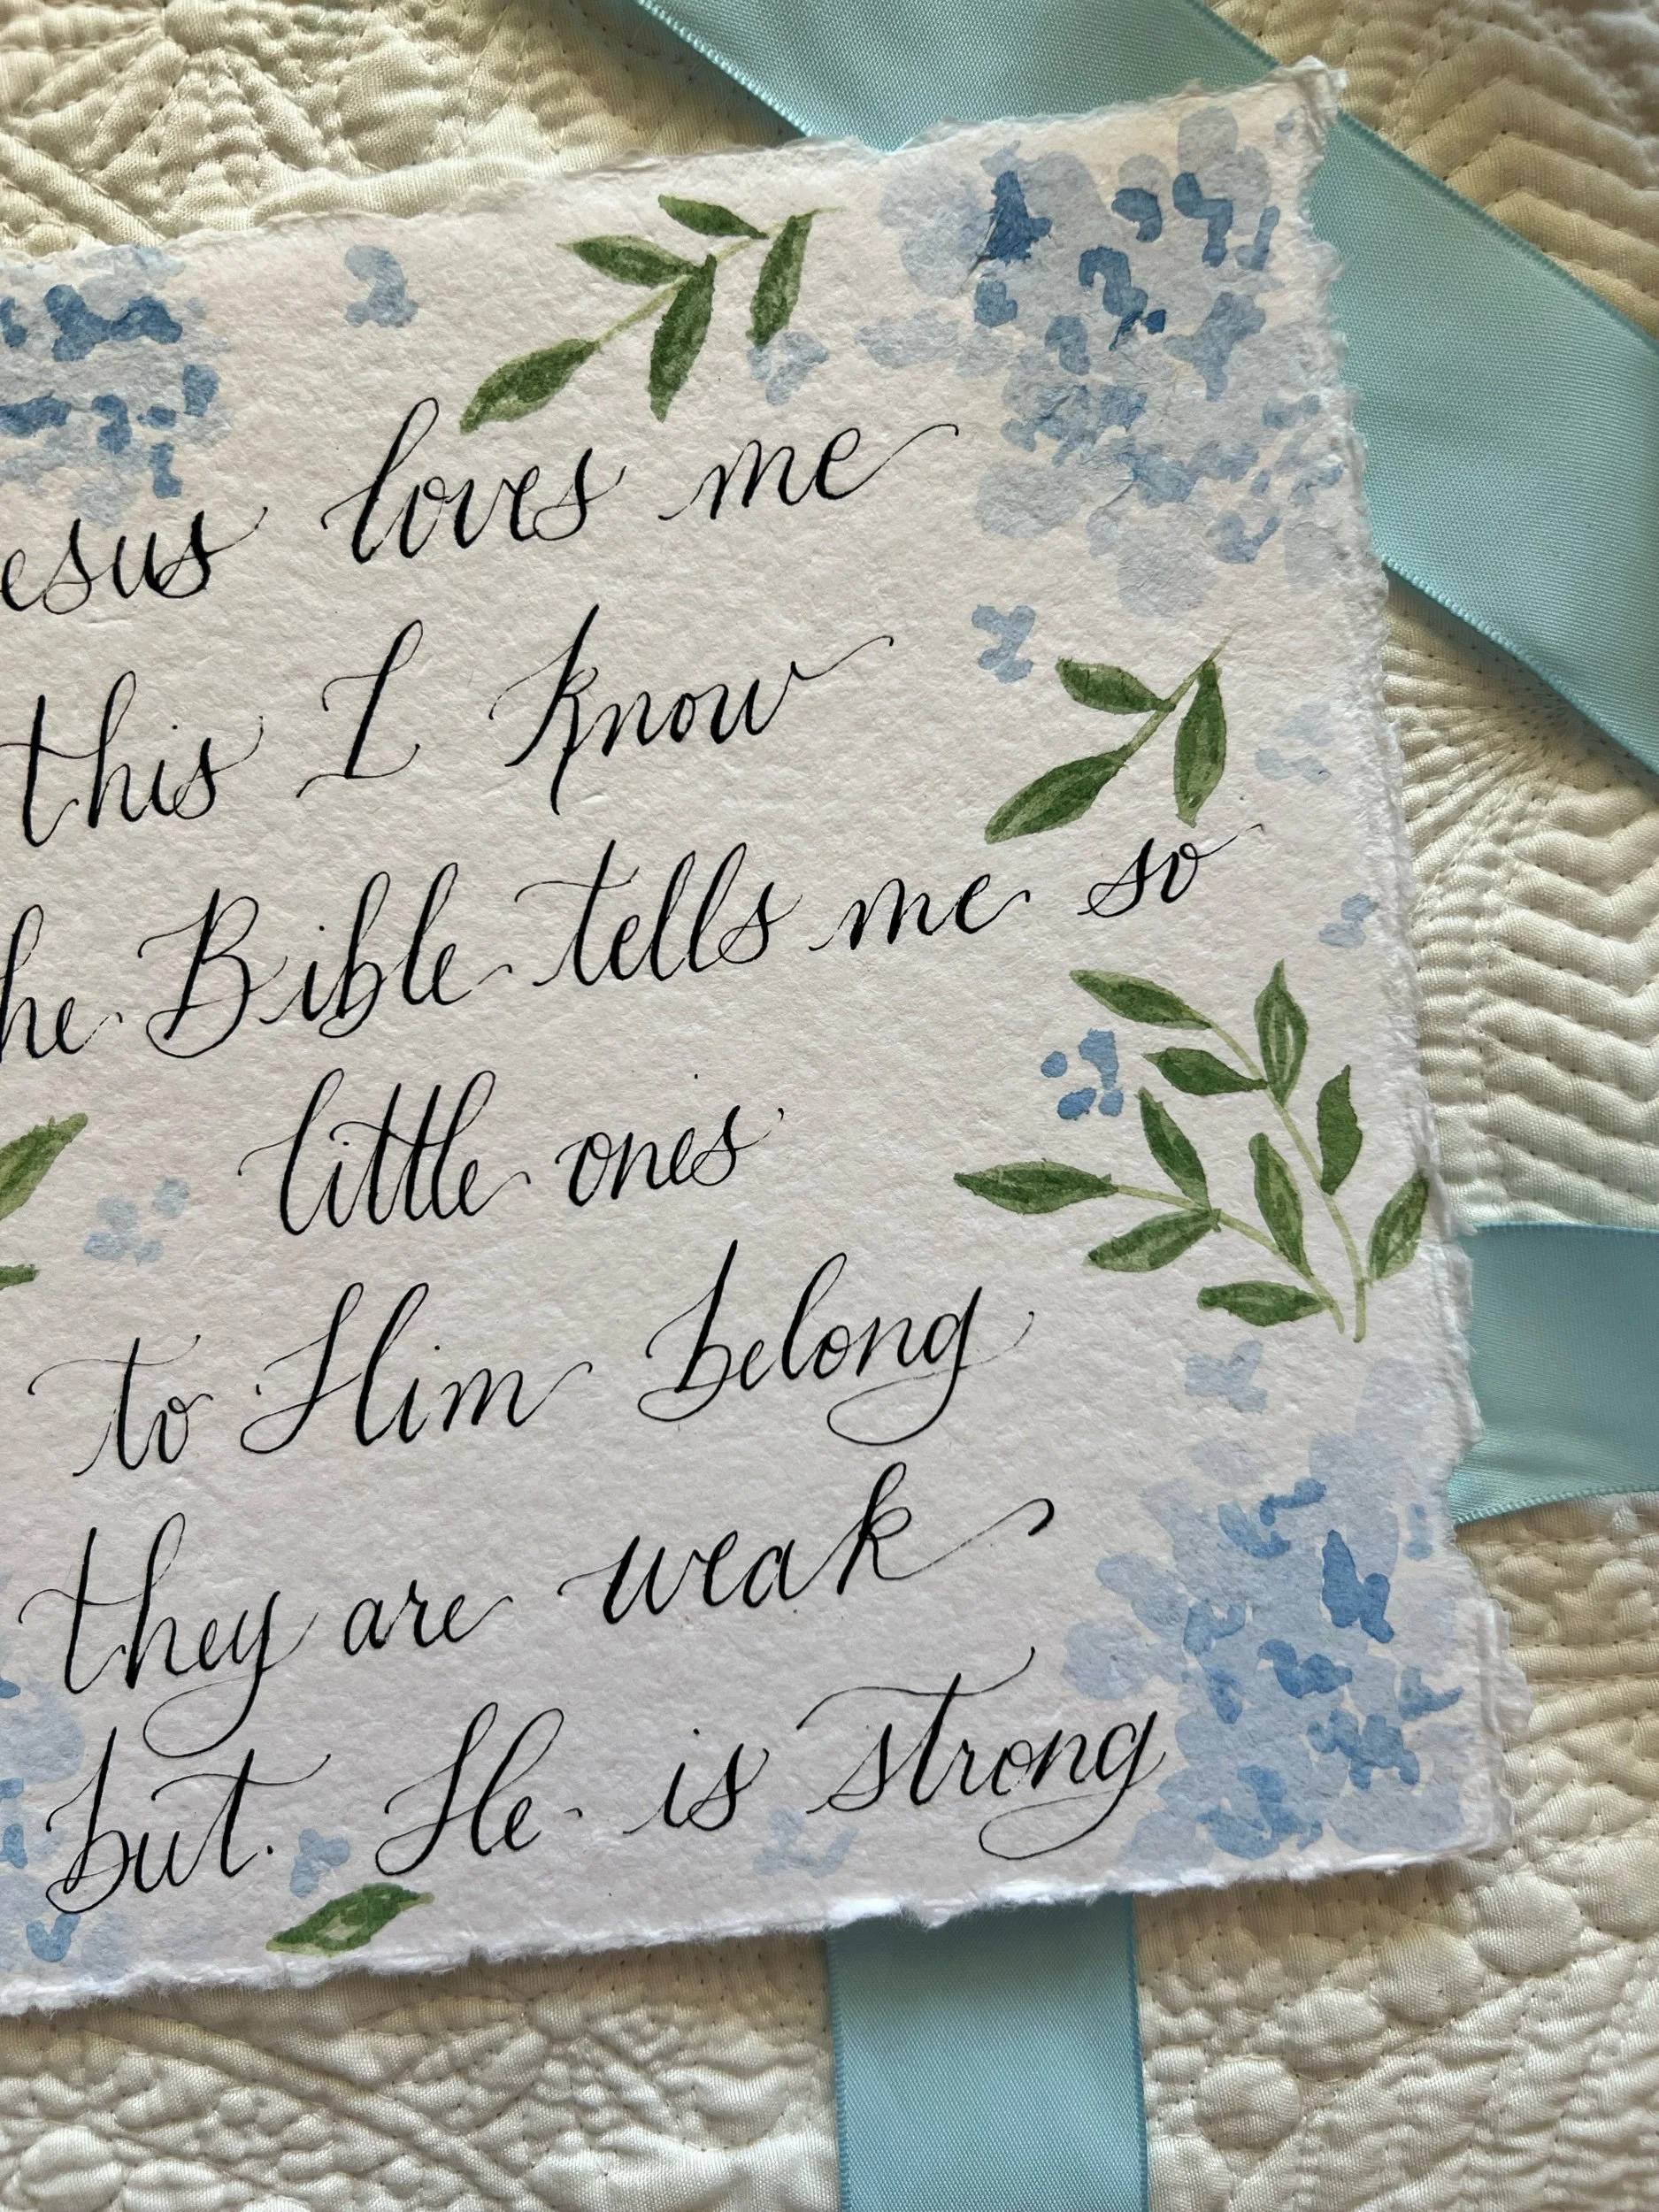 esus loves me
this I know
he Bible tells me so
little ones
to Him belong
they are weak
but He is strong